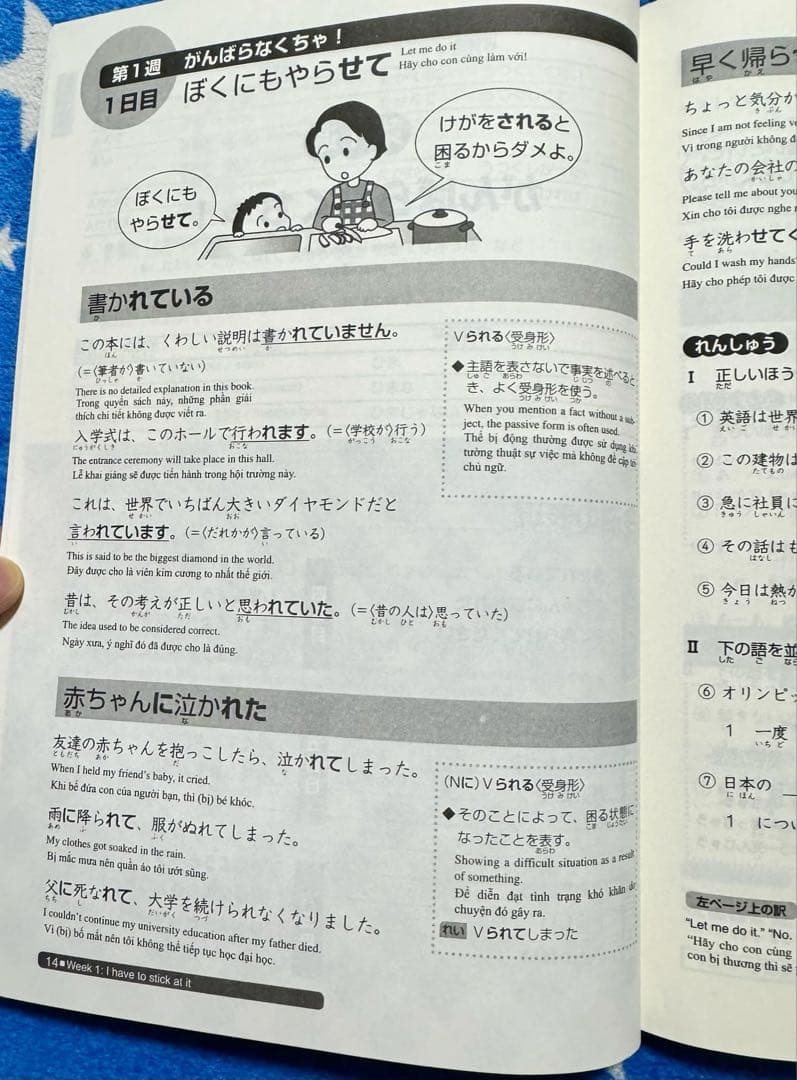 第1週 がんばらなくちゃ！
1日目 ぼくにもやらせて
Let me do it
Hãy cho con cùng làm với!
けがをされると
困るからダメよ。
こま
ぼくにも
やらせて。
書かれている
か
この本には、くわしい説明は書かれていません。
ほん せつめい か
(=〈筆者が〉書いていない)
ひっしゃ か
There is no detailed explanation in this book.
Trong quyển sách này, những phần giải
thích chi tiết không được viết ra.
入学式は、このホールで行われます。(=〈学校が〉行う)
にゅうがくしき おこな がっこう おこな
The entrance ceremony will take place in this hall.
Lễ khai giảng sẽ được tiến hành trong hội trường này.
これは、世界でいちばん大きいダイヤモンドだと
せかい おお
言われています。(=〈だれかが〉言っている)
い い
This is said to be the biggest diamond in the world.
Đây được cho là viên kim cương to nhất thế giới.
昔は、その考えが正しいと思われていた。(=〈昔の人は〉思っていた)
むかし かんが ただ おも むかし ひと おも
The idea used to be considered correct.
Ngày xưa, ý nghĩ đó đã được cho là đúng.
Vられる〈受身形〉
うけみけい
◆主語を表さないで事実を述べると
しゅご あらわ じじつ の
き、よく受身形を使う。
うけみけい つか
When you mention a fact without a sub-
ject, the passive form is often used.
Thể bị động thường được sử dụng khi
tường thuật sự việc mà không đề cập tới
chủ ngữ.
赤ちゃんに泣かれた
あか な
友達の赤ちゃんを抱っこしたら、泣かれてしまった。
ともだち あか だ な
When I held my friend's baby, it cried.
Khi bế đứa con của người bạn, thì (bị) bé khóc.
雨に降られて、服がぬれてしまった。
あめ ふ ふく
My clothes got soaked in the rain.
Bị mắc mưa nên quần áo tôi ướt sũng.
父に死なれて、大学を続けられなくなりました。
ちち し だいがく つづ
I couldn't continue my university education after my father died.
Vì (bị) bố mất nên tôi không thể tiếp tục học đại học.
(Nに) Vられる〈受身形〉
うけみけい
◆そのことによって、困る状態に
こま じょうたい
なったことを表す。
あらわ
Showing a difficult situation as a result
of something.
Để diễn đạt tình trạng khó khăn do
chuyện đó gây ra.
れい Vられてしまった
14■Week 1: I have to stick at it
早く帰ら
はや かえ
ちょっと気分が
きぶん
Since I am not feeling
Vì trong người không
あなたの会社の
かいしゃ
Please tell me about
Xin cho tôi được nghe
手を洗わせてく
て あら
Could I wash my hands
Hãy cho phép tôi được
れんしゅう
I 正しいほう
ただ
① 英語は世界
えいご せか
② この建物は
たてもの
③ 急に社員に
きゅう しゃいん
④ その話は
はなし
⑤ 今日は熱が
きょう ねつ
II 下の語を並
した ご なら
⑥ オリンピッ
1 一度
いちど
⑦ 日本の
にほん
1 につい
左ページ上の訳
"Let me do it." "No.
"Hãy cho con cùng
con bị thương thì sẽ